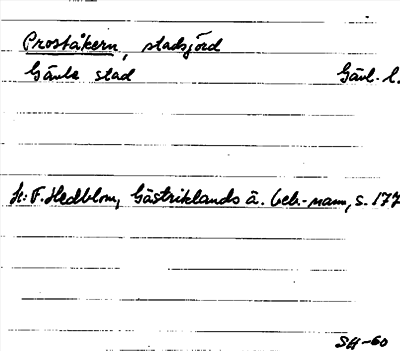 Prostakern, stadsjord
Gävle stad Gävl. l.
H: F. Hedblom, Gästriklands ä. beb-namn, s. 177
SH-60